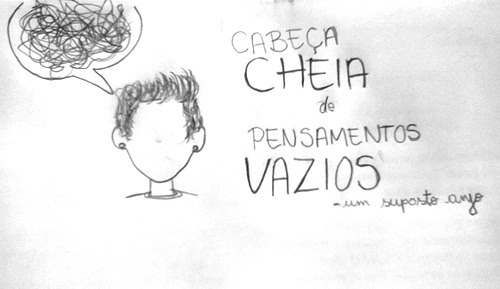 CABEÇA
CHEIA
de
PENSAMENTOS
VAZIOS
-um suposto anjo